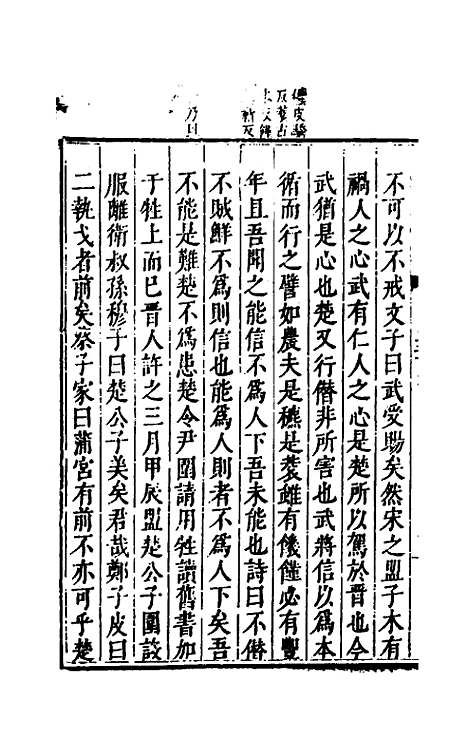 不可以不戒文子曰武受賜矣然宋之盟子木有
禍人之心武有仁人之心是楚所以駕於晉也今
武猶是心也楚又行僭非所害也武將信以爲本
循而行之譬如農夫是穮是蓘雖有饑饉必有豐
年且吾聞之能信不爲人下吾未能也詩曰不僭
不賊鮮不爲則信也能爲人則者不爲人下矣吾
不能是難楚不爲患楚令尹圍請用牲讀舊書加
于牲上而已晉人許之三月甲辰盟楚公子圍設
服離衛叔孫穆子曰楚公子美矣君哉鄭子皮曰
二執戈者前矣蔡子家曰蒲宮有前不亦可乎楚